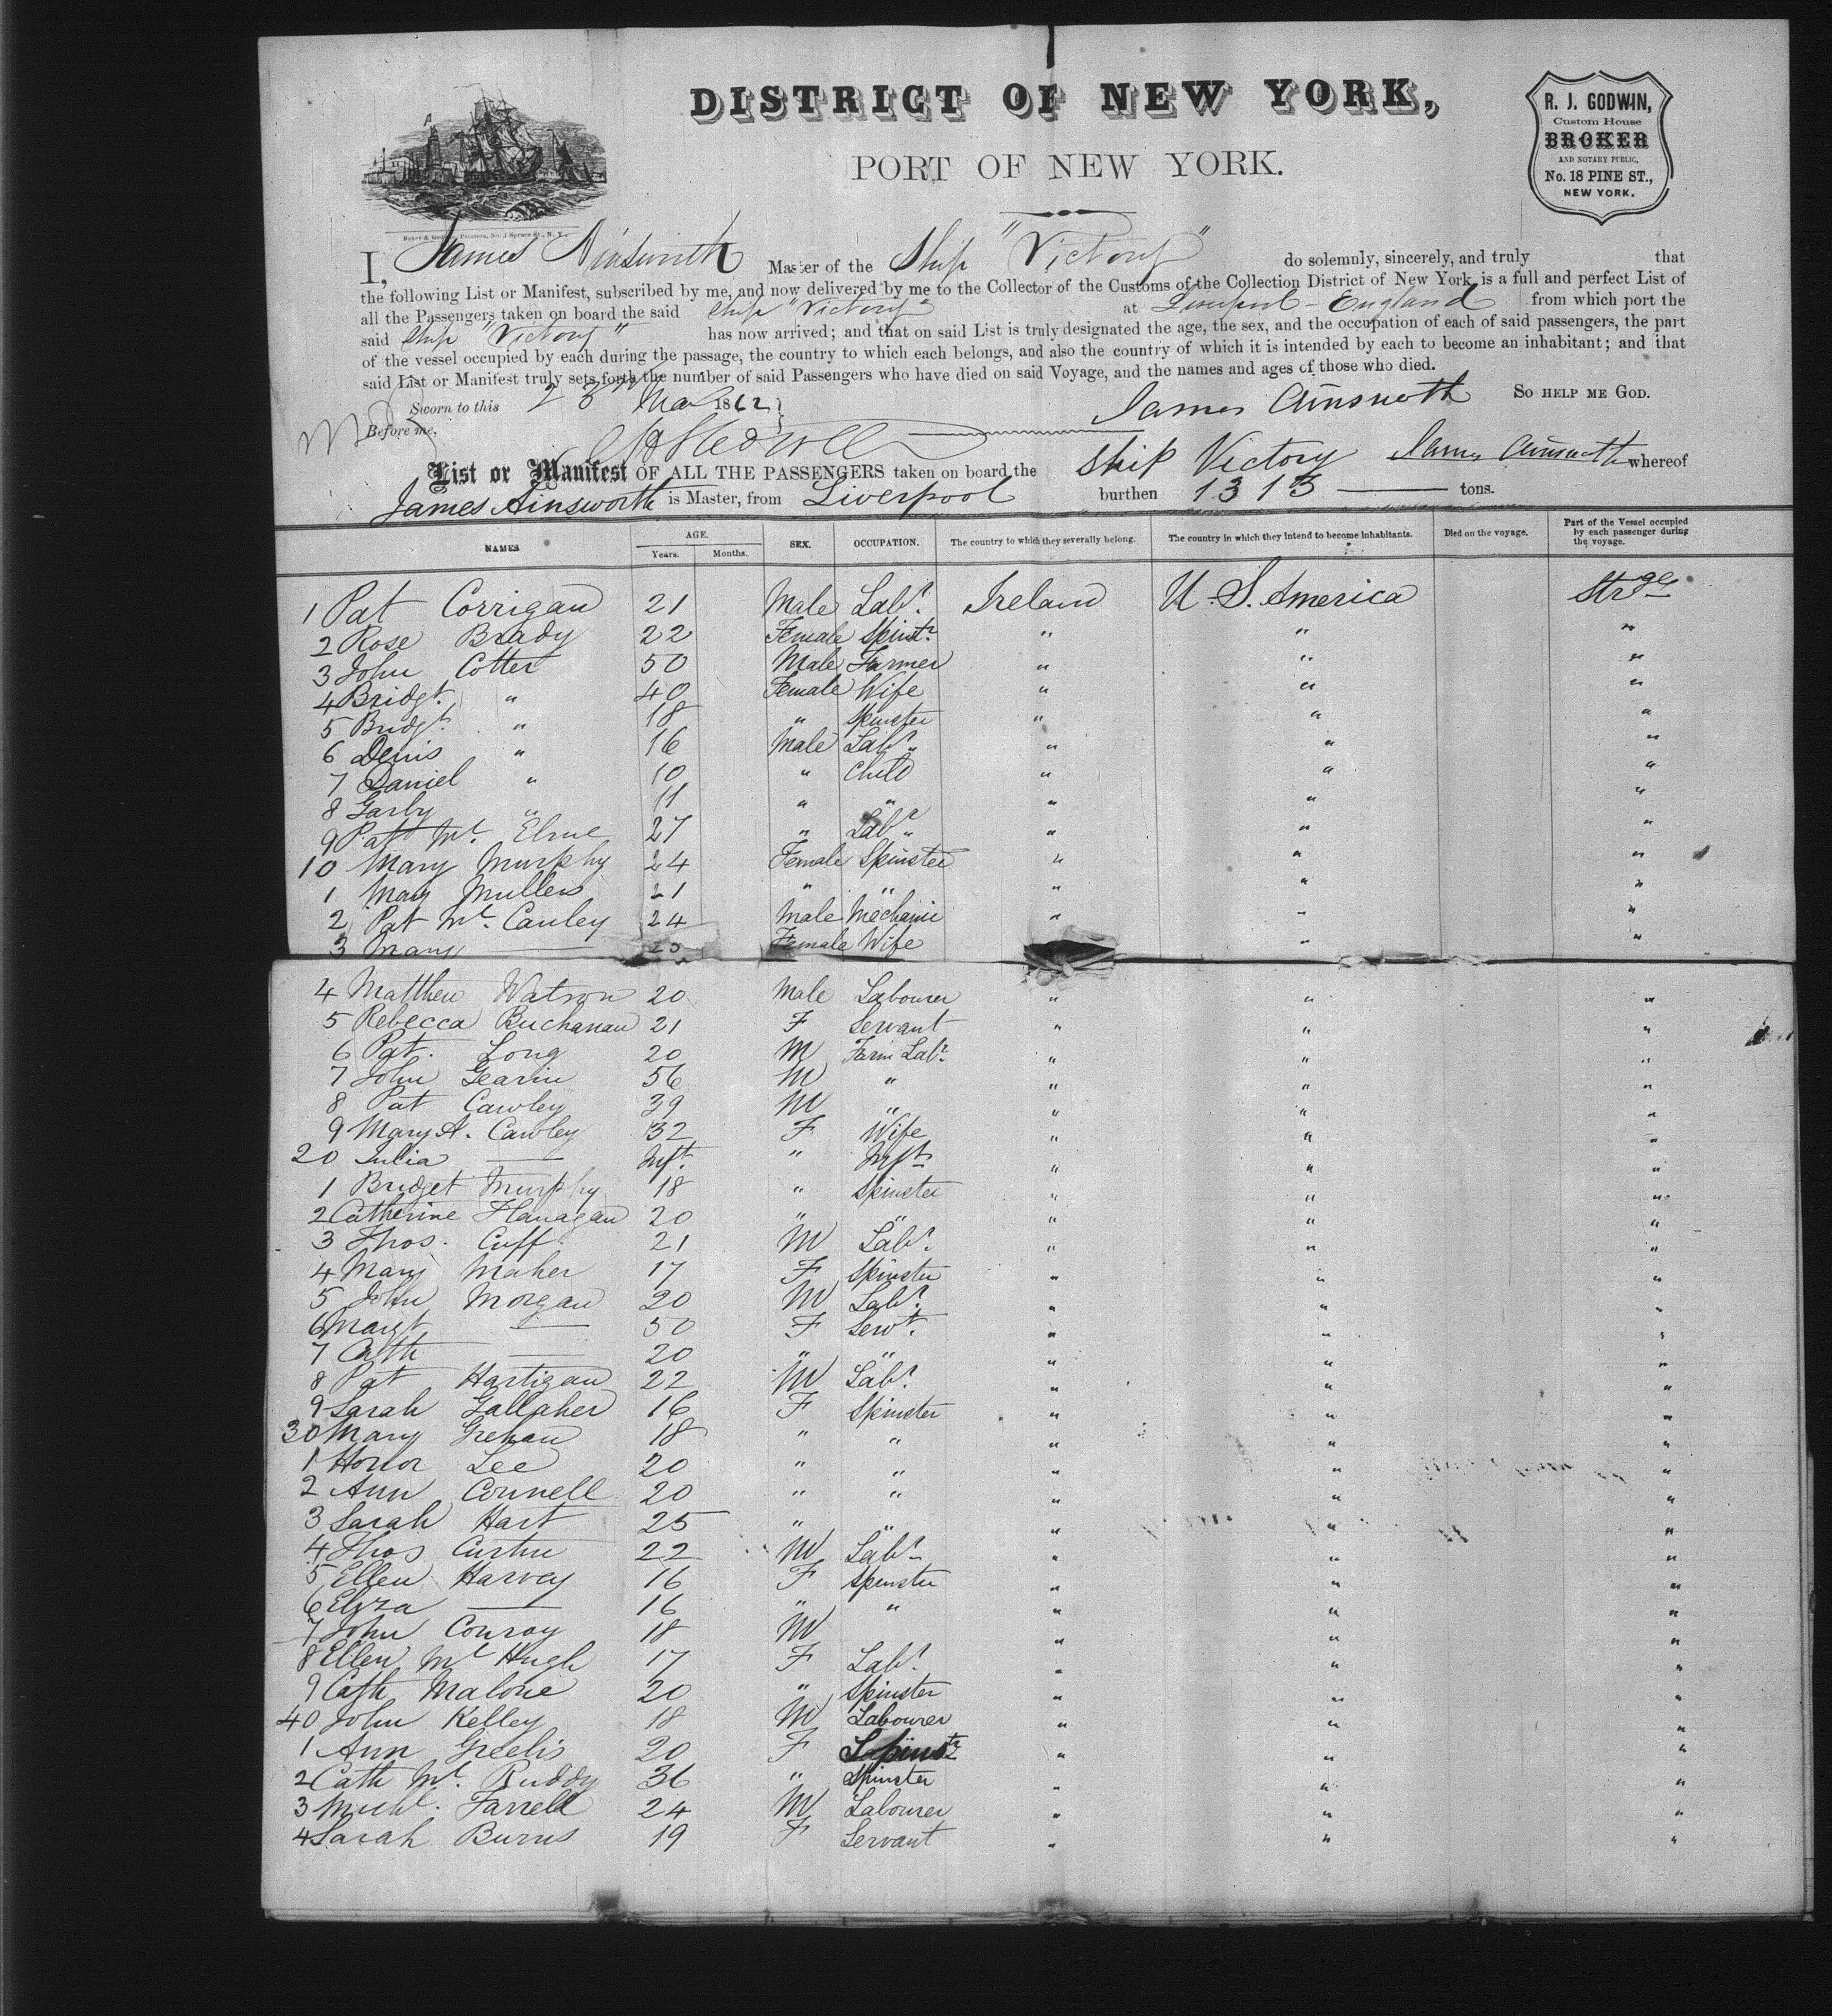 DISTRICT OF NEW YORK,
PORT OF NEW YORK.
R. J. GODWIN,
Custom House
BROKER
AND NOTARY PUBLIC,
No. 18 PINE ST.,
NEW YORK.
Baker & Godwin, Printers, No. 1 Spruce St., N. Y.
I, James Ainsworth Master of the Ship "Victory" do solemnly, sincerely, and truly that
the following List or Manifest, subscribed by me, and now delivered by me to the Collector of the Customs of the Collection District of New York, is a full and perfect List of
all the Passengers taken on board the said Ship "Victory" at Liverpool - England from which port the
said Ship "Victory" has now arrived; and that on said List is truly designated the age, the sex, and the occupation of each of said passengers, the part
of the vessel occupied by each during the passage, the country to which each belongs, and also the country of which it is intended by each to become an inhabitant; and that
said List or Manifest truly sets forth the number of said Passengers who have died on said Voyage, and the names and ages of those who died.
SO HELP ME GOD.
Sworn to this 23rd May 1862 James Ainsworth
Before me,
List or Manifest OF ALL THE PASSENGERS taken on board the Ship Victory James Ainsworth whereof
James Ainsworth is Master, from Liverpool burthen 1313 tons.
NAMES AGE. Years. Months. SEX. OCCUPATION. The country to which they severally belong. The country in which they intend to become inhabitants. Died on the voyage. Part of the Vessel occupied by each passenger during the voyage.
1 Pat Corrigan 21 Male Labr. Ireland U. S. America Strge
2 Rose Brady 22 Female Spinstr. " " "
3 John Cotter 50 Male Farmer " " "
4 Bridgt. " 40 Female Wife " " "
5 Bridgt. " 18 " Spinster " " "
6 Denis " 16 Male Labr. " " "
7 Daniel " 10 " Child " " "
8 Garby " 11 " " " " "
9 Pat Mc. 27 " Labr " " "
10 Mary Murphy 24 Female Spinster " " "
1 Mary Mullen 21 " " " " "
2 Pat Mc. Cauley 24 Male Mechanic " " "
3 Mary —— 25 Female Wife " "
4 Matthew Watson 20 Male Labourer " " "
5 Rebecca Buchanan 21 F Servant " " "
6 Pat. Long 20 M Farm Labr. " " "
7 John Gearin 56 M " " " "
8 Pat Cawley 39 M " " " "
9 Mary A. Cawley 32 F Wife " " "
20 Julia —— Inft. " Inft " " "
1 Bridget Murphy 18 " Spinster " " "
2 Catherine Flanagan 20 " " " " "
3 Thos. Cuff 21 M Labr. " " "
4 Mary Maher 17 F Spinster " " "
5 John Morgan 20 M Labr. " " "
6 Margt —— 50 F Servt. " " "
7 Cath —— 20 " " " " "
8 Pat Hartigan 22 M Labr. " " "
9 Sarah Gallaher 16 F Spinster " " "
30 Mary Grehan 18 " " " " "
1 Honor Lee 20 " " " " "
2 Ann Connell 20 " " " " "
3 Sarah Hart 25 " " " " "
4 Thos Curtin 22 M Labr " " "
5 Ellen Harvey 16 F Spinster " " "
6 Eliza —— 16 " " " " "
7 John Conroy 18 M " " "
8 Ellen Mc Hugh 17 F Labr. " " "
9 Cath Malone 20 " Spinster " " "
40 John Kelley 18 M Labourer " " "
1 Ann Greelis 20 F Spinstr " " "
2 Cath Mc. Ruddy 36 " Spinster " " "
3 Michl. Farrell 24 M Labourer " " "
4 Sarah Burns 19 F Servant " " "